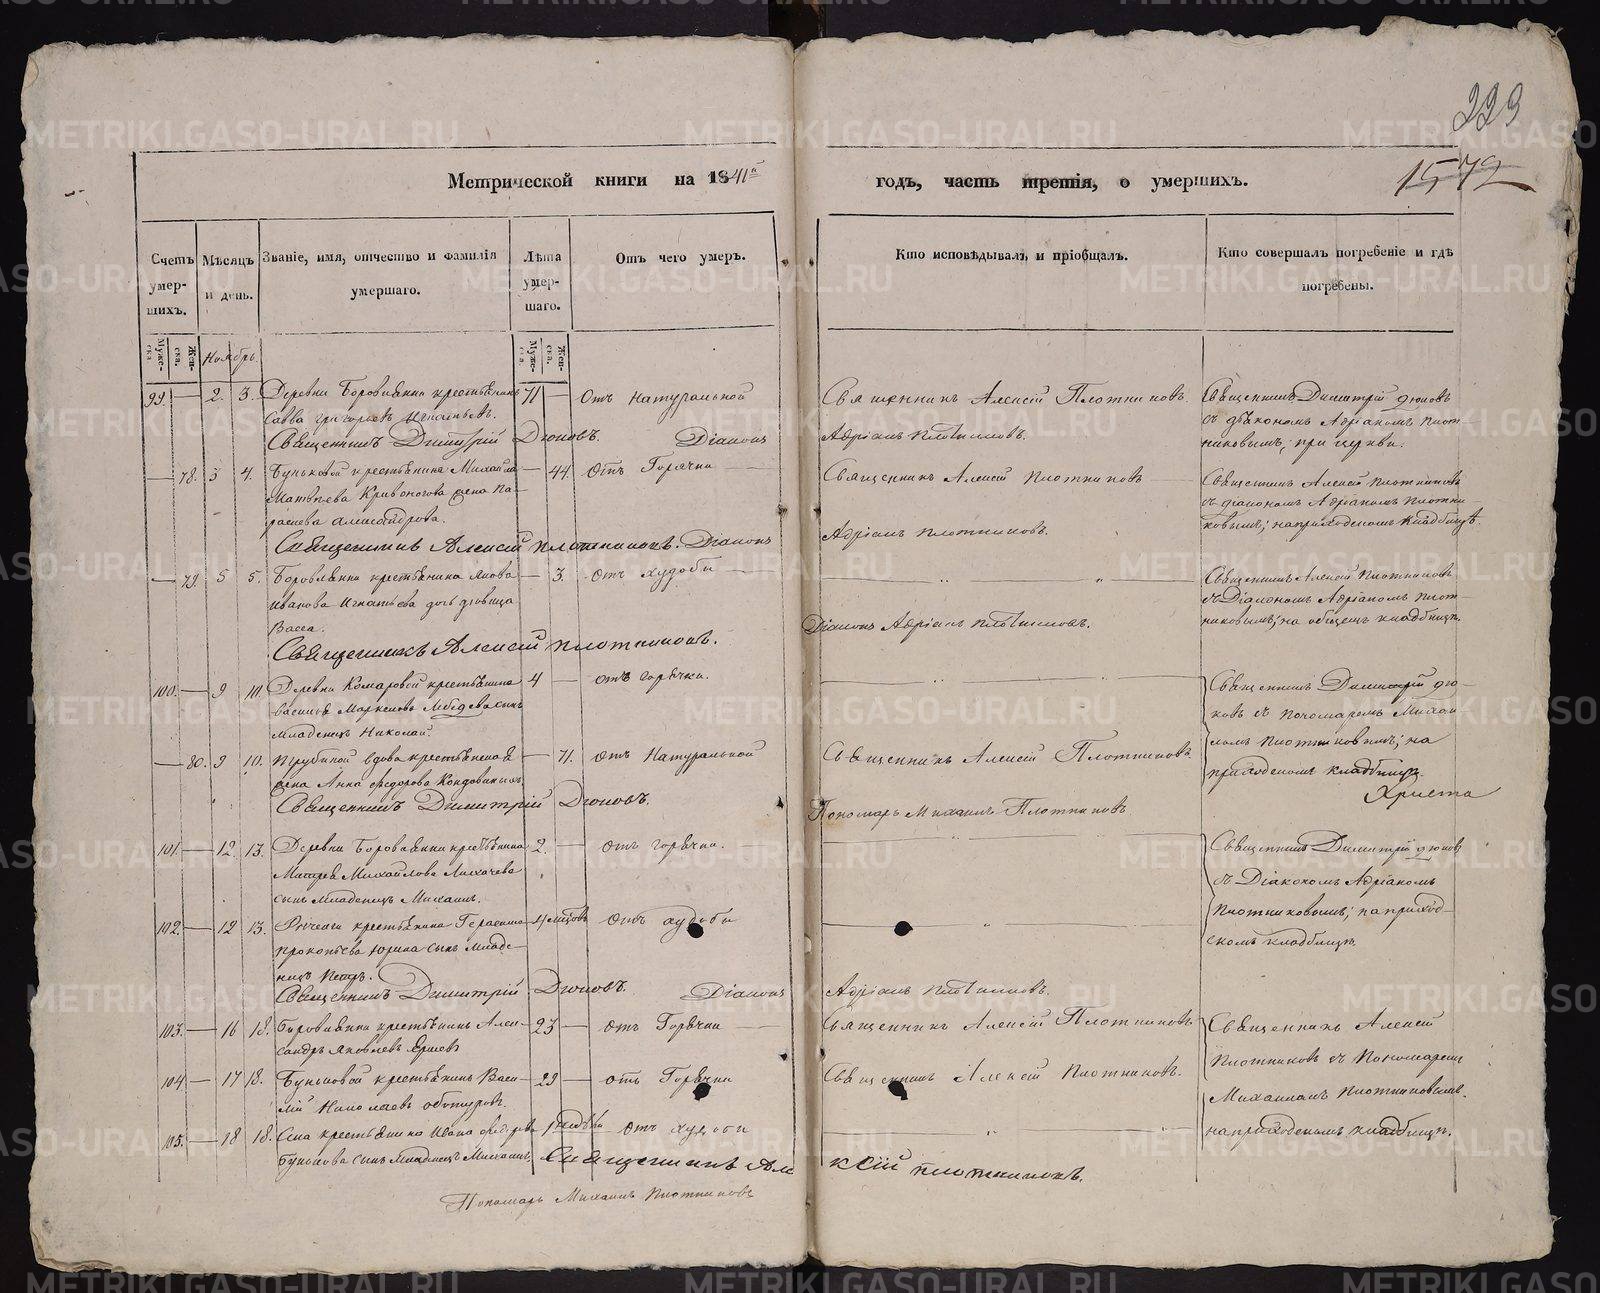 223
1572
Метрической книги на 1841й годъ, часть третія, о умершихъ.
Счетъ умер-
шихъ.
Мѣсяцъ
и день.
Званіе, имя, отчество и фамилія
умершаго.
Лѣта
умер-
шаго.
Отъ чего умеръ.
Кто исповѣдывалъ и пріобщалъ.
Кто совершалъ погребеніе и гдѣ
погребены.
Муже-
ска.
Жен-
ска.
Ноябрь
Муже-
ска.
Жен-
ска.
99. — 2. 3. Деревни Боровлянки крестьянинъ 71 — Отъ натуральной Священникъ Алексій Плотниковъ. Священникъ Димитрій Дюковъ
Савва Григорьевъ Игнатьевъ. съ діакономъ Адріаномъ Плот-
Священникъ Димитрій Дюковъ. Діаконъ Адріанъ Плотниковъ. никовымъ, при церкви.
— 78. 3 4. Буньковой крестьянина Михайла — 44. Отъ Горячки Священникъ Алексій Плотниковъ Священникъ Алексій Плотниковъ
Матвѣева Кривоногова жена Па- съ діакономъ Адріаномъ Плотни-
раскева Александрова. ковымъ; на приходскомъ кладбищѣ.
Священникъ Алексій Плотниковъ. Діаконъ Адріанъ Плотниковъ.
— 79. 5 5. Боровлянки крестьянина Якова — 3. Отъ худобы Священникъ Алексій Плотниковъ
Иванова Игнатьева дочь дѣвица съ Діакономъ Адріаномъ Плот-
Васса. Діаконъ Адріанъ Плотниковъ. никовымъ; на общемъ кладбищѣ.
Священникъ Алексій Плотниковъ.
100. — 9 10. Деревни Комаровой крестьянина 4 — отъ горячки. Священникъ Димитрій Дю-
Василья Маркелова
младенецъ Николай. ковъ съ Пономаремъ Михаи-
— 80. 9 10. Трубиной вдова крестьянская — 71. отъ Натуральной Священникъ Алексій Плотниковъ ломъ Плотниковымъ; на
жена Анна Федорова приходскомъ кладбищѣ.
Христа
Священникъ Димитрій Дюковъ. Пономарь Михаилъ Плотниковъ
101. — 12. 13. Деревни Боровлянки крестьянина 2. — отъ горячки. Священникъ Димитрій Дюковъ
Матвея Михайлова Лихачева съ Діакономъ Адріаномъ
сынъ младенецъ Михаилъ. Плотниковымъ; на приход-
102. — 12 13. крестьянина Герасима 4 отъ худобы скомъ кладбищѣ.
Прокопьева Юрина сынъ младе-
нецъ Петръ.
Священникъ Димитрій Дюковъ. Діаконъ Адріанъ Плотниковъ.
103. — 16 18. Боровлянки крестьянинъ Алек- 23 — отъ Горячки Священникъ Алексій Плотниковъ Священникъ Алексій
сандръ Яковлевъ Ершевъ Плотниковъ съ Пономаремъ
104 — 17 18. Буньковой крестьянинъ Васи- 29 — отъ Горячки Священникъ Алексій Плотниковъ. Михаиломъ Плотниковымъ.
лій Николаевъ
105. — 18 18. Села крестьянина Ивана отъ худобы на приходскомъ кладбищѣ.
Бунькова сынъ младенецъ Михаилъ. Священникъ Алексій Плотниковъ.
Пономарь Михаилъ Плотниковъ
METRIKI.GASO-URAL.RU